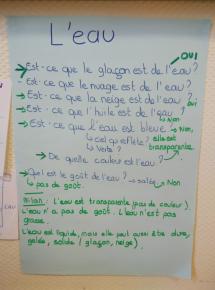 L'eau
OUI
→ Est-ce que le glaçon est de l'eau?
- Est-ce que le nuage est de l'eau?
→ Est-ce que la neige est de l'eau? oui
→ Est-ce que l'huile est de l'eau?
→ Non
→ Est-ce que l'eau est bleue → Non,
↳ ciel qui reflète? elle est
transparente.
→ De quelle couleur est l'eau?
→ Quel est le goût de l'eau? → salée
↳ pas de goût. Non
Bilan: L'eau est transparente (pas de couleur).
L'eau n'a pas de goût. L'eau n'est pas
grasse.
L'eau est liquide, mais elle peut aussi être dure,
gelée, solide (glaçon, neige).